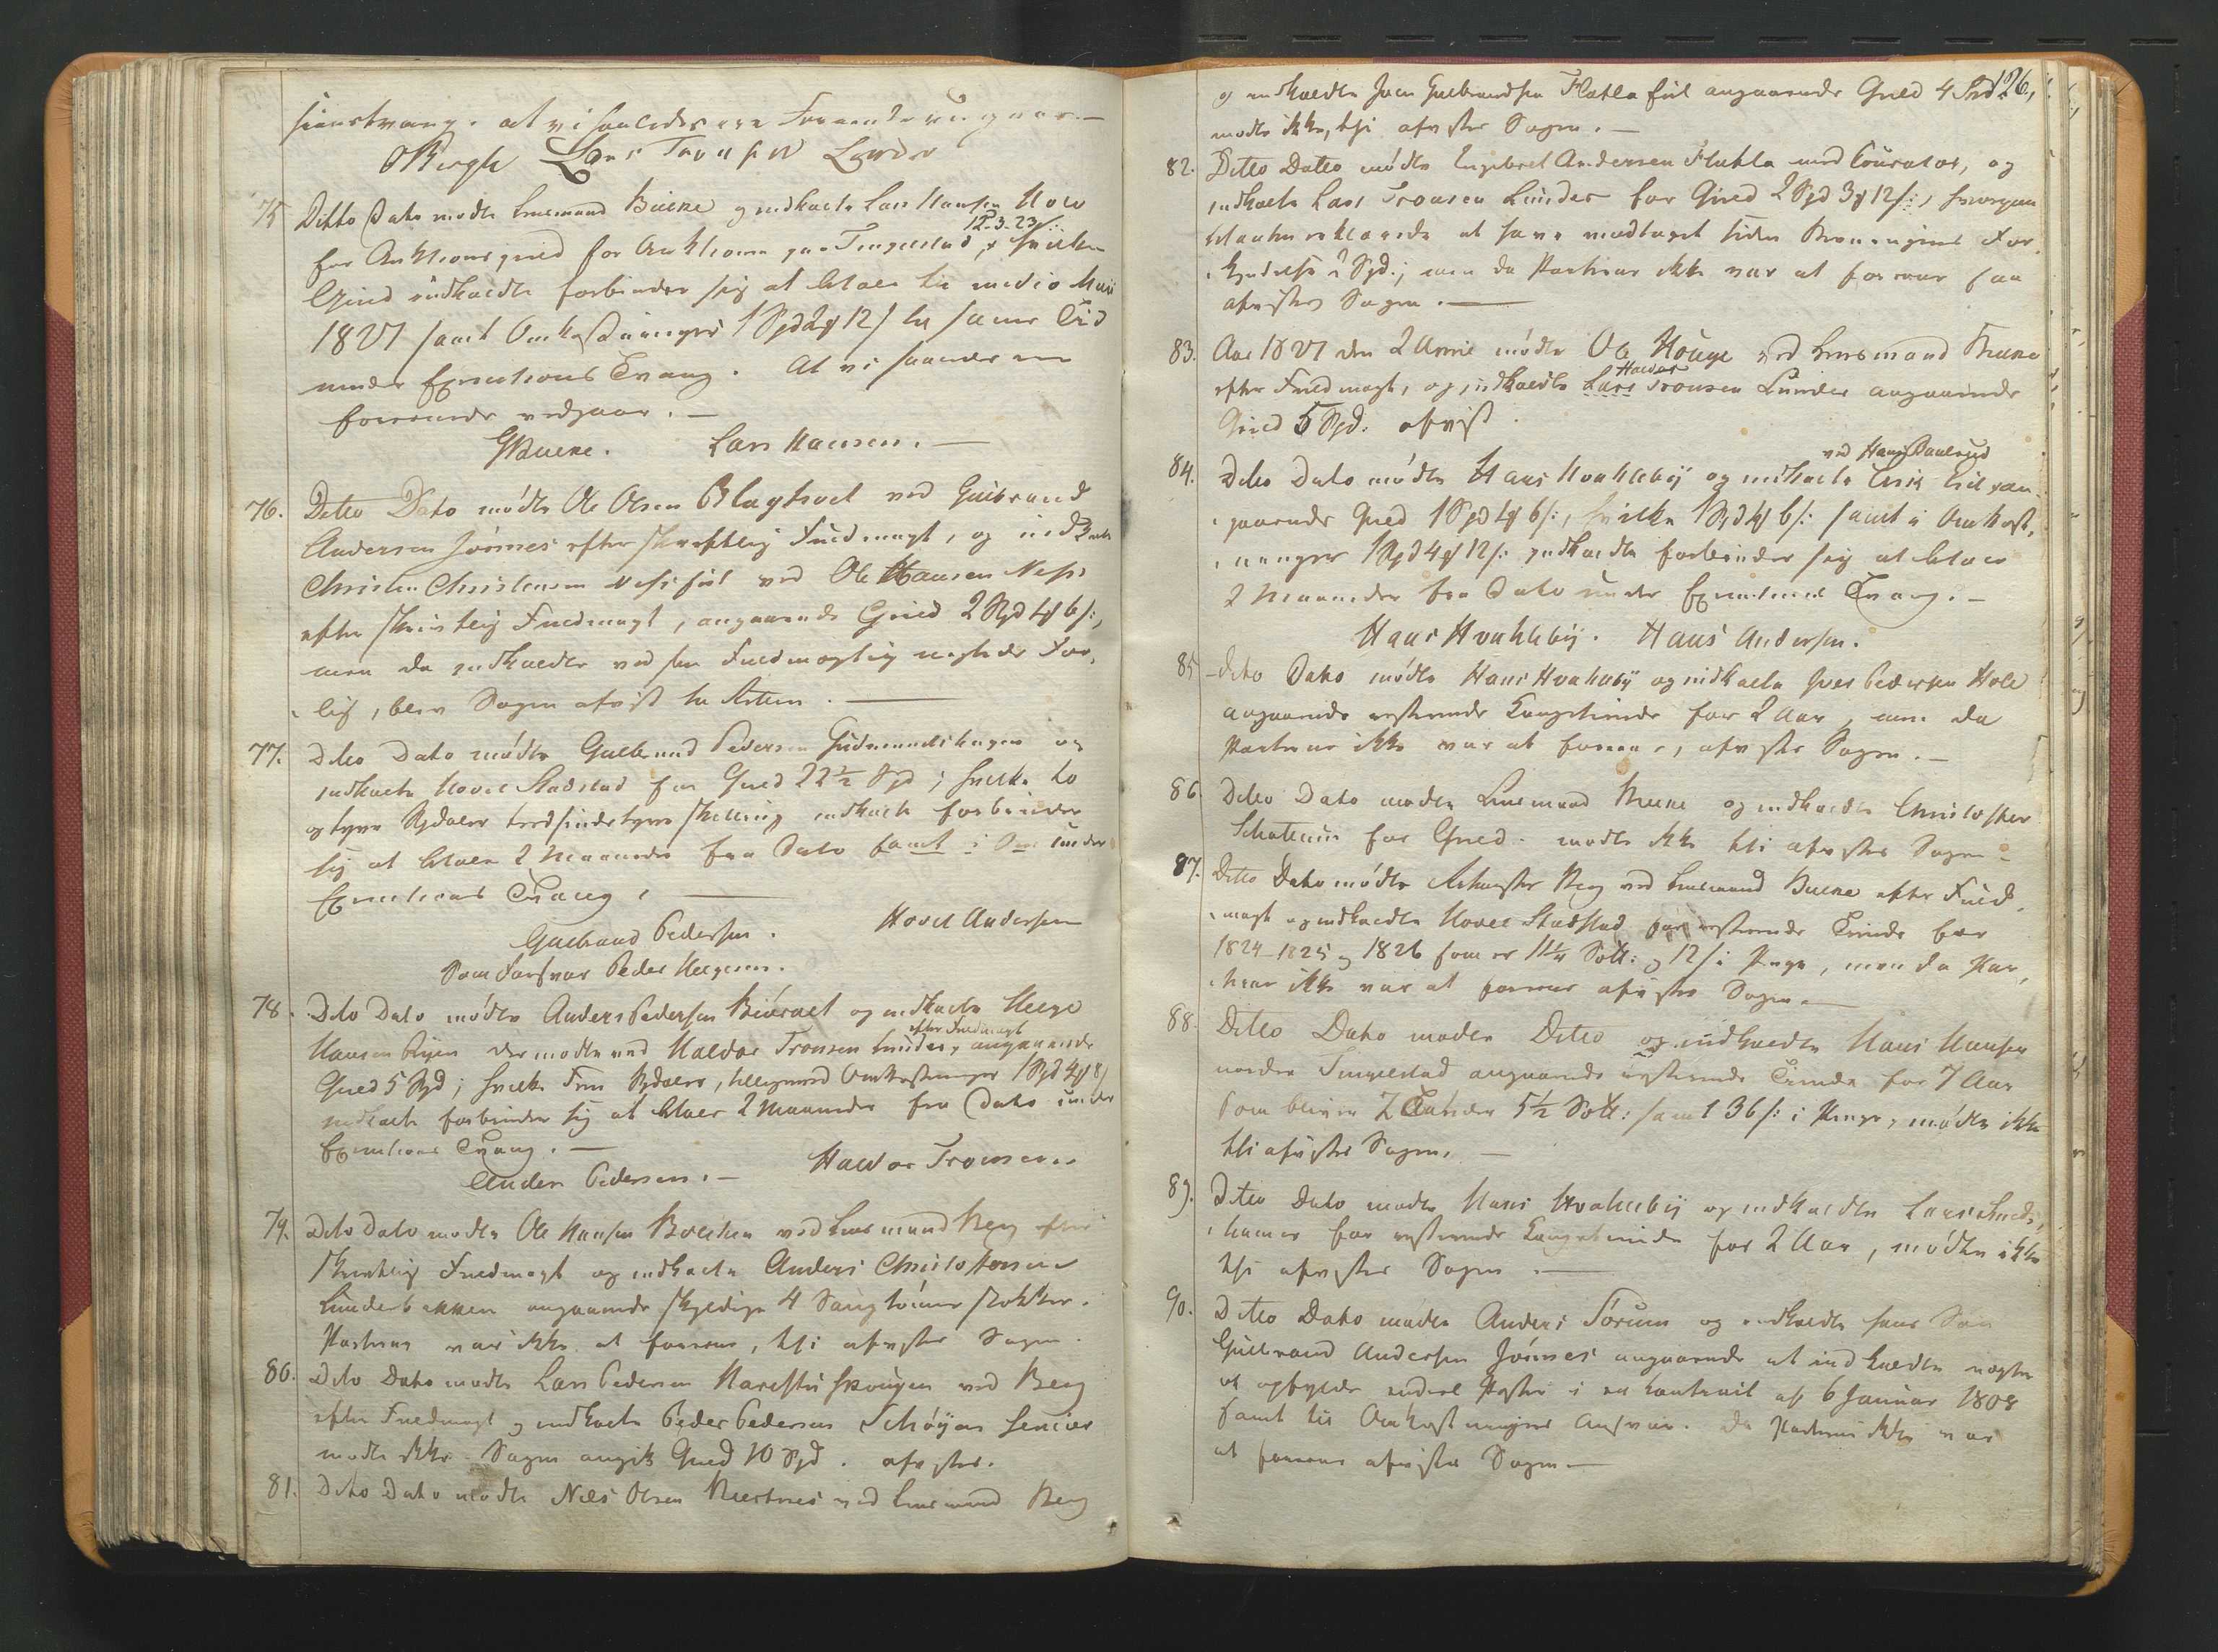 sionstvang. at vi saaledes ere Forenede vedgaaes.—
OBergh Lars Tronsen Lunder
75 Ditto Dato mødte Lensmand Buene og indkaldte Lars Hansen Hole
12-3-23/:
for Auktionsgield for Auktionen paa Tingelstad, hvilken
Gield indkaldte forbinder sig at betale til medio Maii
1827 samt Omkostninger 1 Spd 2 ort 12 s til samme Tid
under Executions Tvang. At vi saaledes ere
forenede vedgaaer.—
GBuene. Lars Hansen.—
76. Ditto Dato mødte Ole Olsen Blagtvet ved Gulbrand
Andersen Jørnes efter skriftlig Fuldmagt, og indkaldte
Christen Christensen ved Ole Hansen Næss
efter skriftlig Fuldmagt, angaaende Gield 2 Spd 4 ort 6 s:,
men da indkaldte ved sin Fuldmægtig negtede For,
lig, blev Sagen afvist til Retten.—
77. Ditto Dato mødte Gulbrand Pedersen Gudmundshagen og
indkaldte Hovel Stadstad for Gield 22½ Spd; hvilke to
og tyve Spdaler tredsindstyve Skilling indkaldte forbinder
sig at betale 2 Maaneder fra Dato samt i Om under
Executions Tvang.—
Gulbrand Pedersen. Hovel Andersen
Som Forsvar Peder Helgesen.
78. Dito Dato mødte Anders Pedersen Biøralt og indkaldte Helge
efter Fuldmagt
Hansen Ryen der mødte ved Haldor Tronsen Lunder, angaaende
Gield 5 Spd; hvilke Fem Spdaler, tilligemed Omkostninger 1 Spd 4 ort 8 s
indkaldte forbinder sig at betale 2 Maaneder fra Dato under
Executions Tvang.—
Anders Pedersen.— Haldor Tronsen.
79. Dito Dato mødte Ole Hansen Bolken ved Lensmand Berg efter
Skriftlig Fuldmagt og indkaldte Anders Christoffersen
Lunderbakken angaaende skyldige 4 Saugtømmerstokker.
Parterne var ikke at forene, thi afvistes Sagen.
80. Dito Dato mødte Lars Pedersen Harestuskougen ved Berg
efter Fuldmagt og indkaldte Peder Pedersen Schøyen Senior
mødte ikke. Sagen angik Gield 10 Spd. afvistes.
81. Dito Dato mødte Niels Olsen ved Lensmand Berg
126,
og indkaldte Joen Gulbrandsen Flatla angaaende Gield 4 Spd
mødte ikke, thi afvistes Sagen.—
82. Ditto Datto mødte Engebret Andersen Flatla med Courator, og
indkaldte Lars Tronsen Lunder for Gield 2 Spd 3 ort 12 s:, hvorpaa
erklærede at have modtaget siden For,
kyndelse 2 Spd.; men da Parterne ikke var at forene saa
afvistes Sagen.—
83. Aar 1827 den 2 April mødte Ole Houge ved Lensmand Buene
Haldor
efter Fuldmagt, og indkaldte Lars Tronsen Lunder angaaende
Gield 5 Spd. afvist.
ved Hans Paulsrud
84. Ditto Dato mødte Hans Hvahleby og indkaldte an,
gaaende Gield 1 Spd 4 ort 6 s:, hvilke 1 Spd 4 ort 6 s: samt i Omkost,
ninger 1 Spd 4 ort 12 s: indkaldte forbinder sig at betale
2 Maaneder fra Dato under Executions Tvang.—
Hans Hvahleby. Hans Andersen.
85 Ditto Dato mødte Hans Hvahleby og indkaldte Iver Pedersen Hole
angaaende resterende Kongetiende for 2 Aar, men da
Parterne ikke var at forene, afvistes Sagen.—
86. Ditto Dato mødte Lensmand Buene og indkaldte Christopher
for Gield. mødte ikke thi afvistes Sagen.
87. Ditto Dato mødte Berg ved Lensmand Buene efter Fuld,
magt og indkaldte Hovel Stadstad for resterende Tiende for
1824-1825 og 1826 som er 11¼ Sett: og 12 s i Penge, men da Par,
terne ikke var at forene afvistes Sagen.—
88. Ditto Dato mødte Ditto og indkaldte Hans Hansen
nordre Tingelstad angaaende resterende Tiende for 7 Aar
som bliver 7 Tønder 5½ Sett: samt 36 s: i Penge, mødte ikke
thi afvistes Sagen.—
89. Ditto Dato mødte Hans Hvahleby og indkaldte Lars Smeds,
hammer for resterende Kongetiende for 2 Aar, mødte ikke
thi afvistes Sagen.—
90. Ditto Dato mødte Anders Sørum og indkaldte hans Søn
Gulbrand Andersen Jørnes angaaende at indkaldte negter
at opfylde endeel Poster i en Contract af 6 Januar 1808
samt til Omkostningers Ansvar. Da Parterne ikke var
at forene afvistes Sagen.—